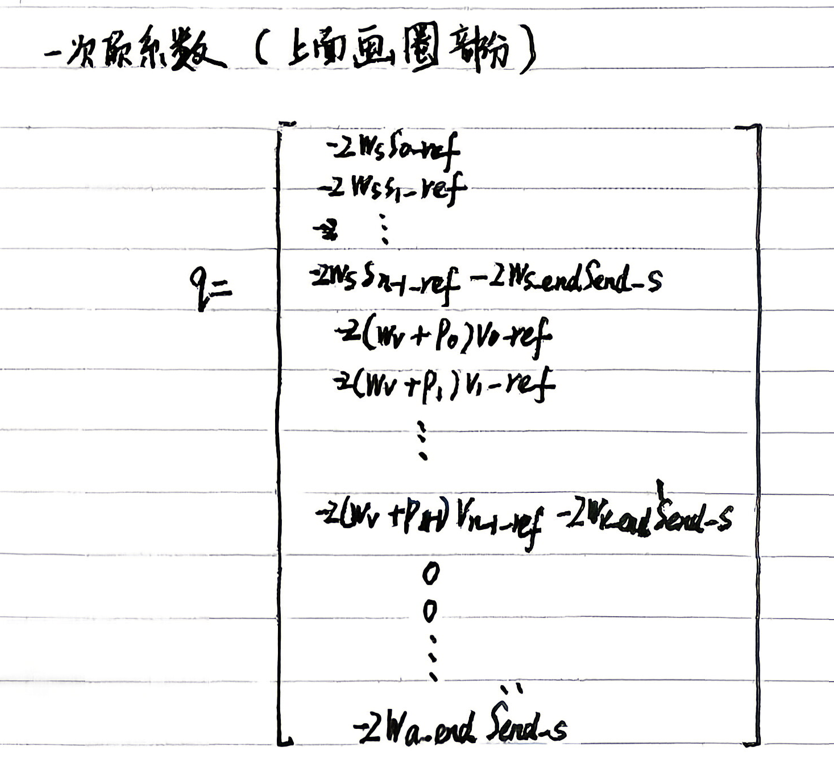 一次项系数（上面画圈部分）
-2WsS0-ref
-2WsS1-ref
-2 ⋮
q= -2WsSn-1-ref -2Ws-endSend-s
-2(Wv+P0)V0-ref
-2(Wv+P1)V1-ref
⋮
-2(Wv+Pn-1)Vn-1-ref -2Wv-endṠend-s
0
0
⋮
-2Wa-end S̈end-s